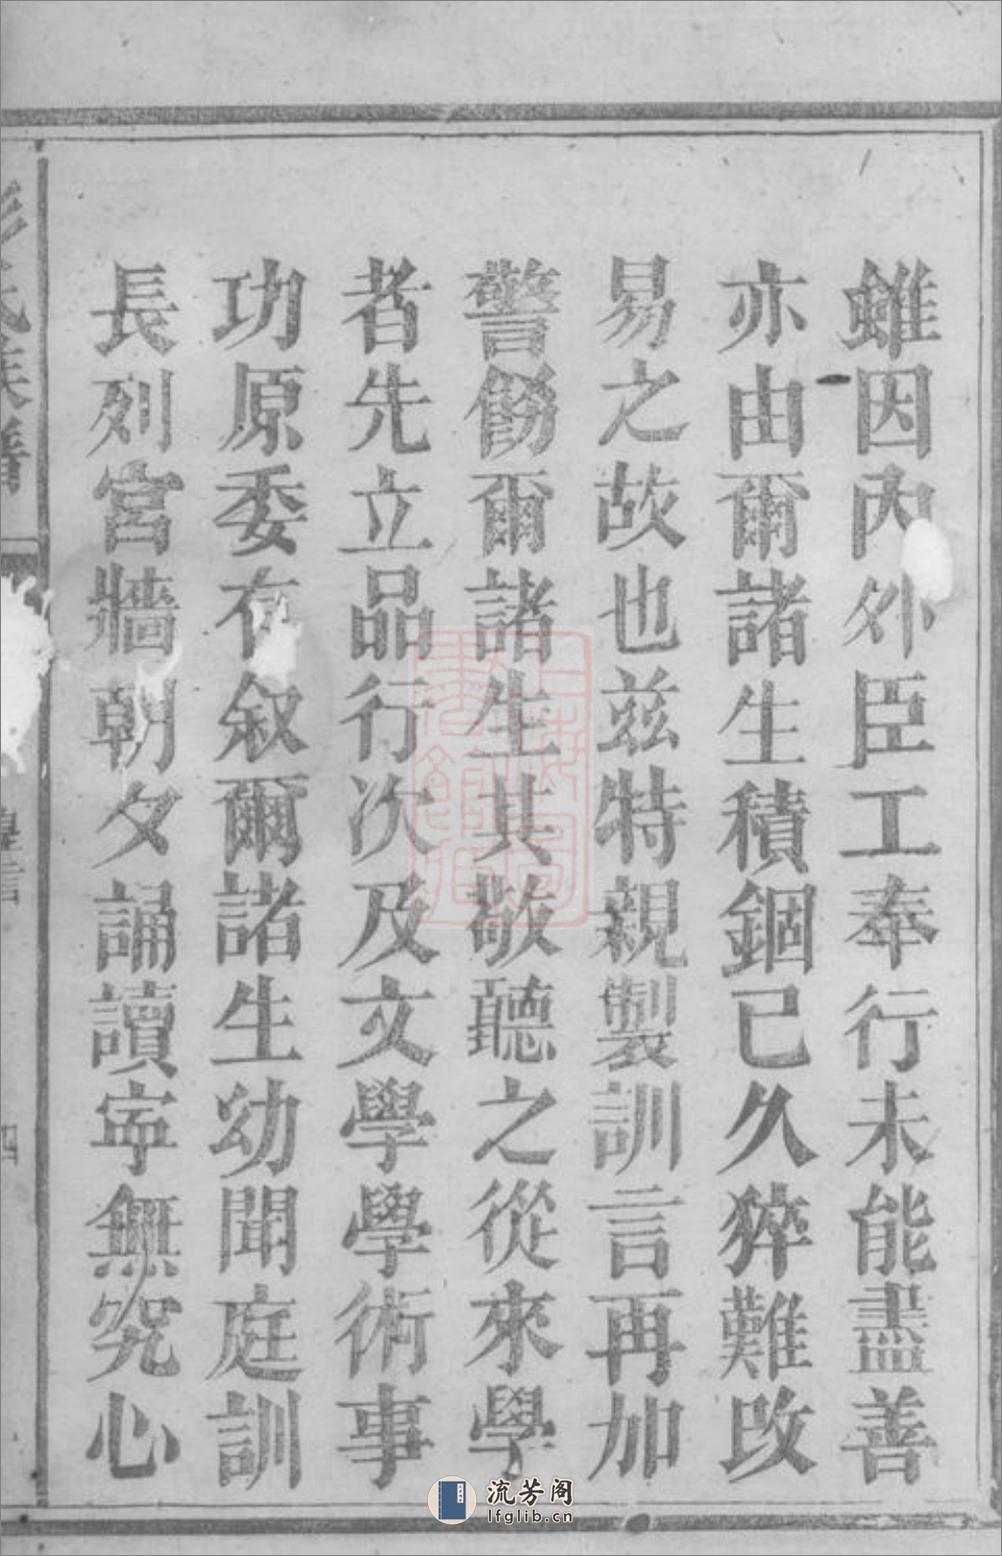 雖因內外臣工奉行未能盡善
亦由爾諸生積錮已久猝難改
易之故也茲特親製訓言再加
警飭爾諸生其敬聽之從來學
者先立品行次及文學學術事
功原委有叙爾諸生幼聞庭訓
長列宮牆朝夕誦讀寧無究心
氏族譜
四
流芳阁
lfglib.cn